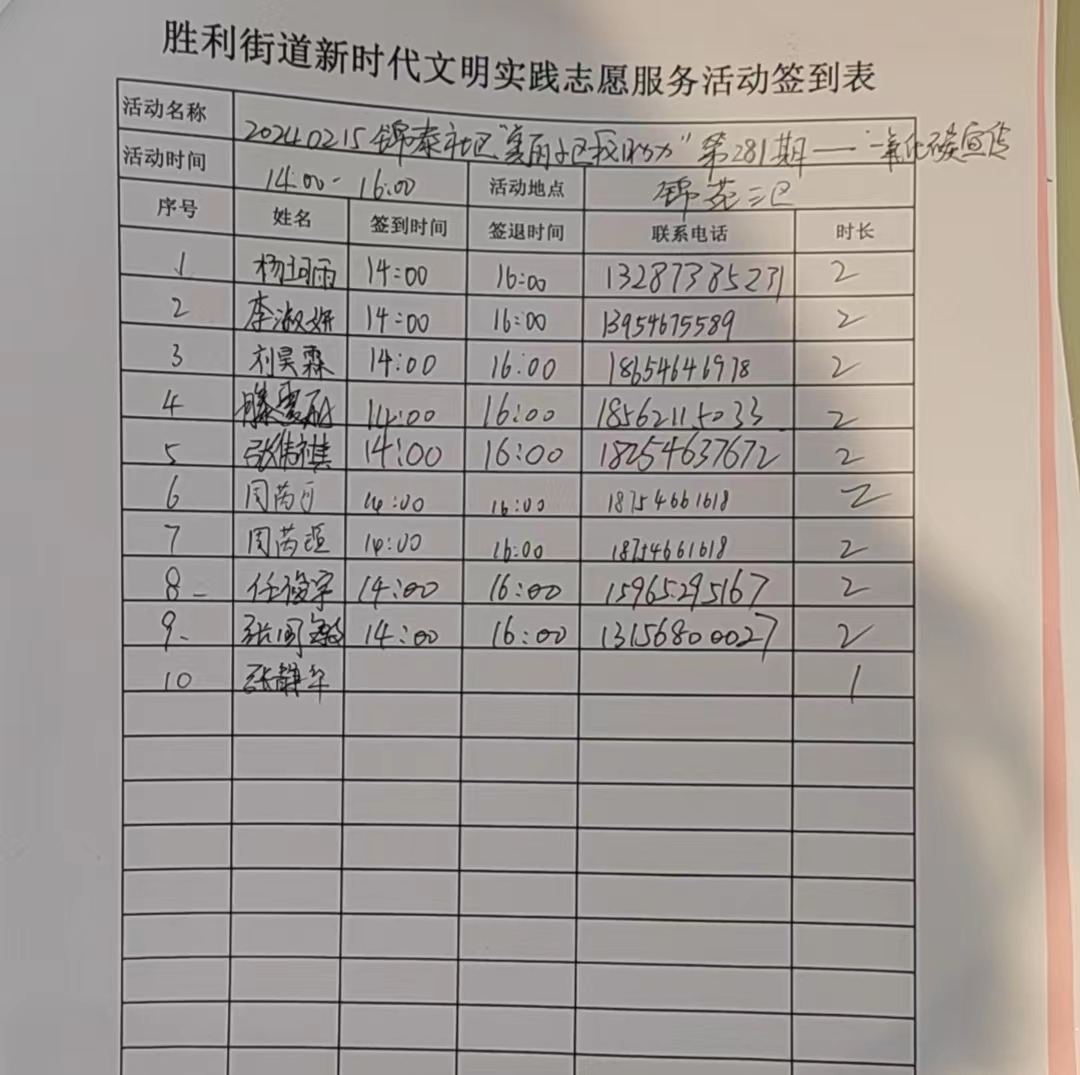 胜利街道新时代文明实践志愿服务活动签到表
活动名称 20240215锦泰社区"美丽小区我助力"第281期——一氧化碳宣传
活动时间 14:00-16:00 活动地点 锦苑三区
序号 姓名 签到时间 签退时间 联系电话 时长
1 杨珂雨 14:00 16:00 13287385231 2
2 李淑妍 14:00 16:00 13954675589 2
3 刘昊霖 14:00 16:00 18654646978 2
4 滕 14:00 16:00 18562115033 2
5 张倩祺 14:00 16:00 18254637672 2
6 周芮可 14:00 16:00 18754661618 2
7 周芮 14:00 16:00 18754661618 2
8 任俊宇 14:00 16:00 15965295167 2
9 张国 14:00 16:00 13156800027 2
10 张静年 1